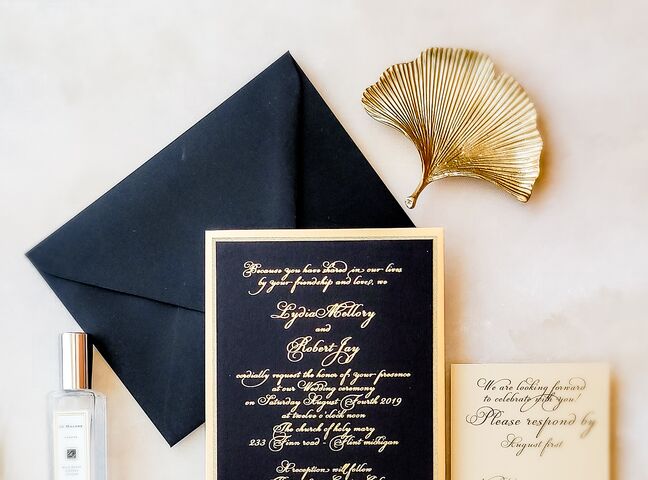 Because you have shared in our lives
by your friendship and loves, we
Lydia Mellory
and
Robert Jay
cordially request the honor of your presence
at our Wedding ceremony
on Saturday August Fourth 2019
at twelve o'clock noon
The church of holy mary
233 Finn road - Flint michigan
Reception will follow
We are looking forward
to celebrate with you!
Please respond by
August first
JO MALONE
LONDON